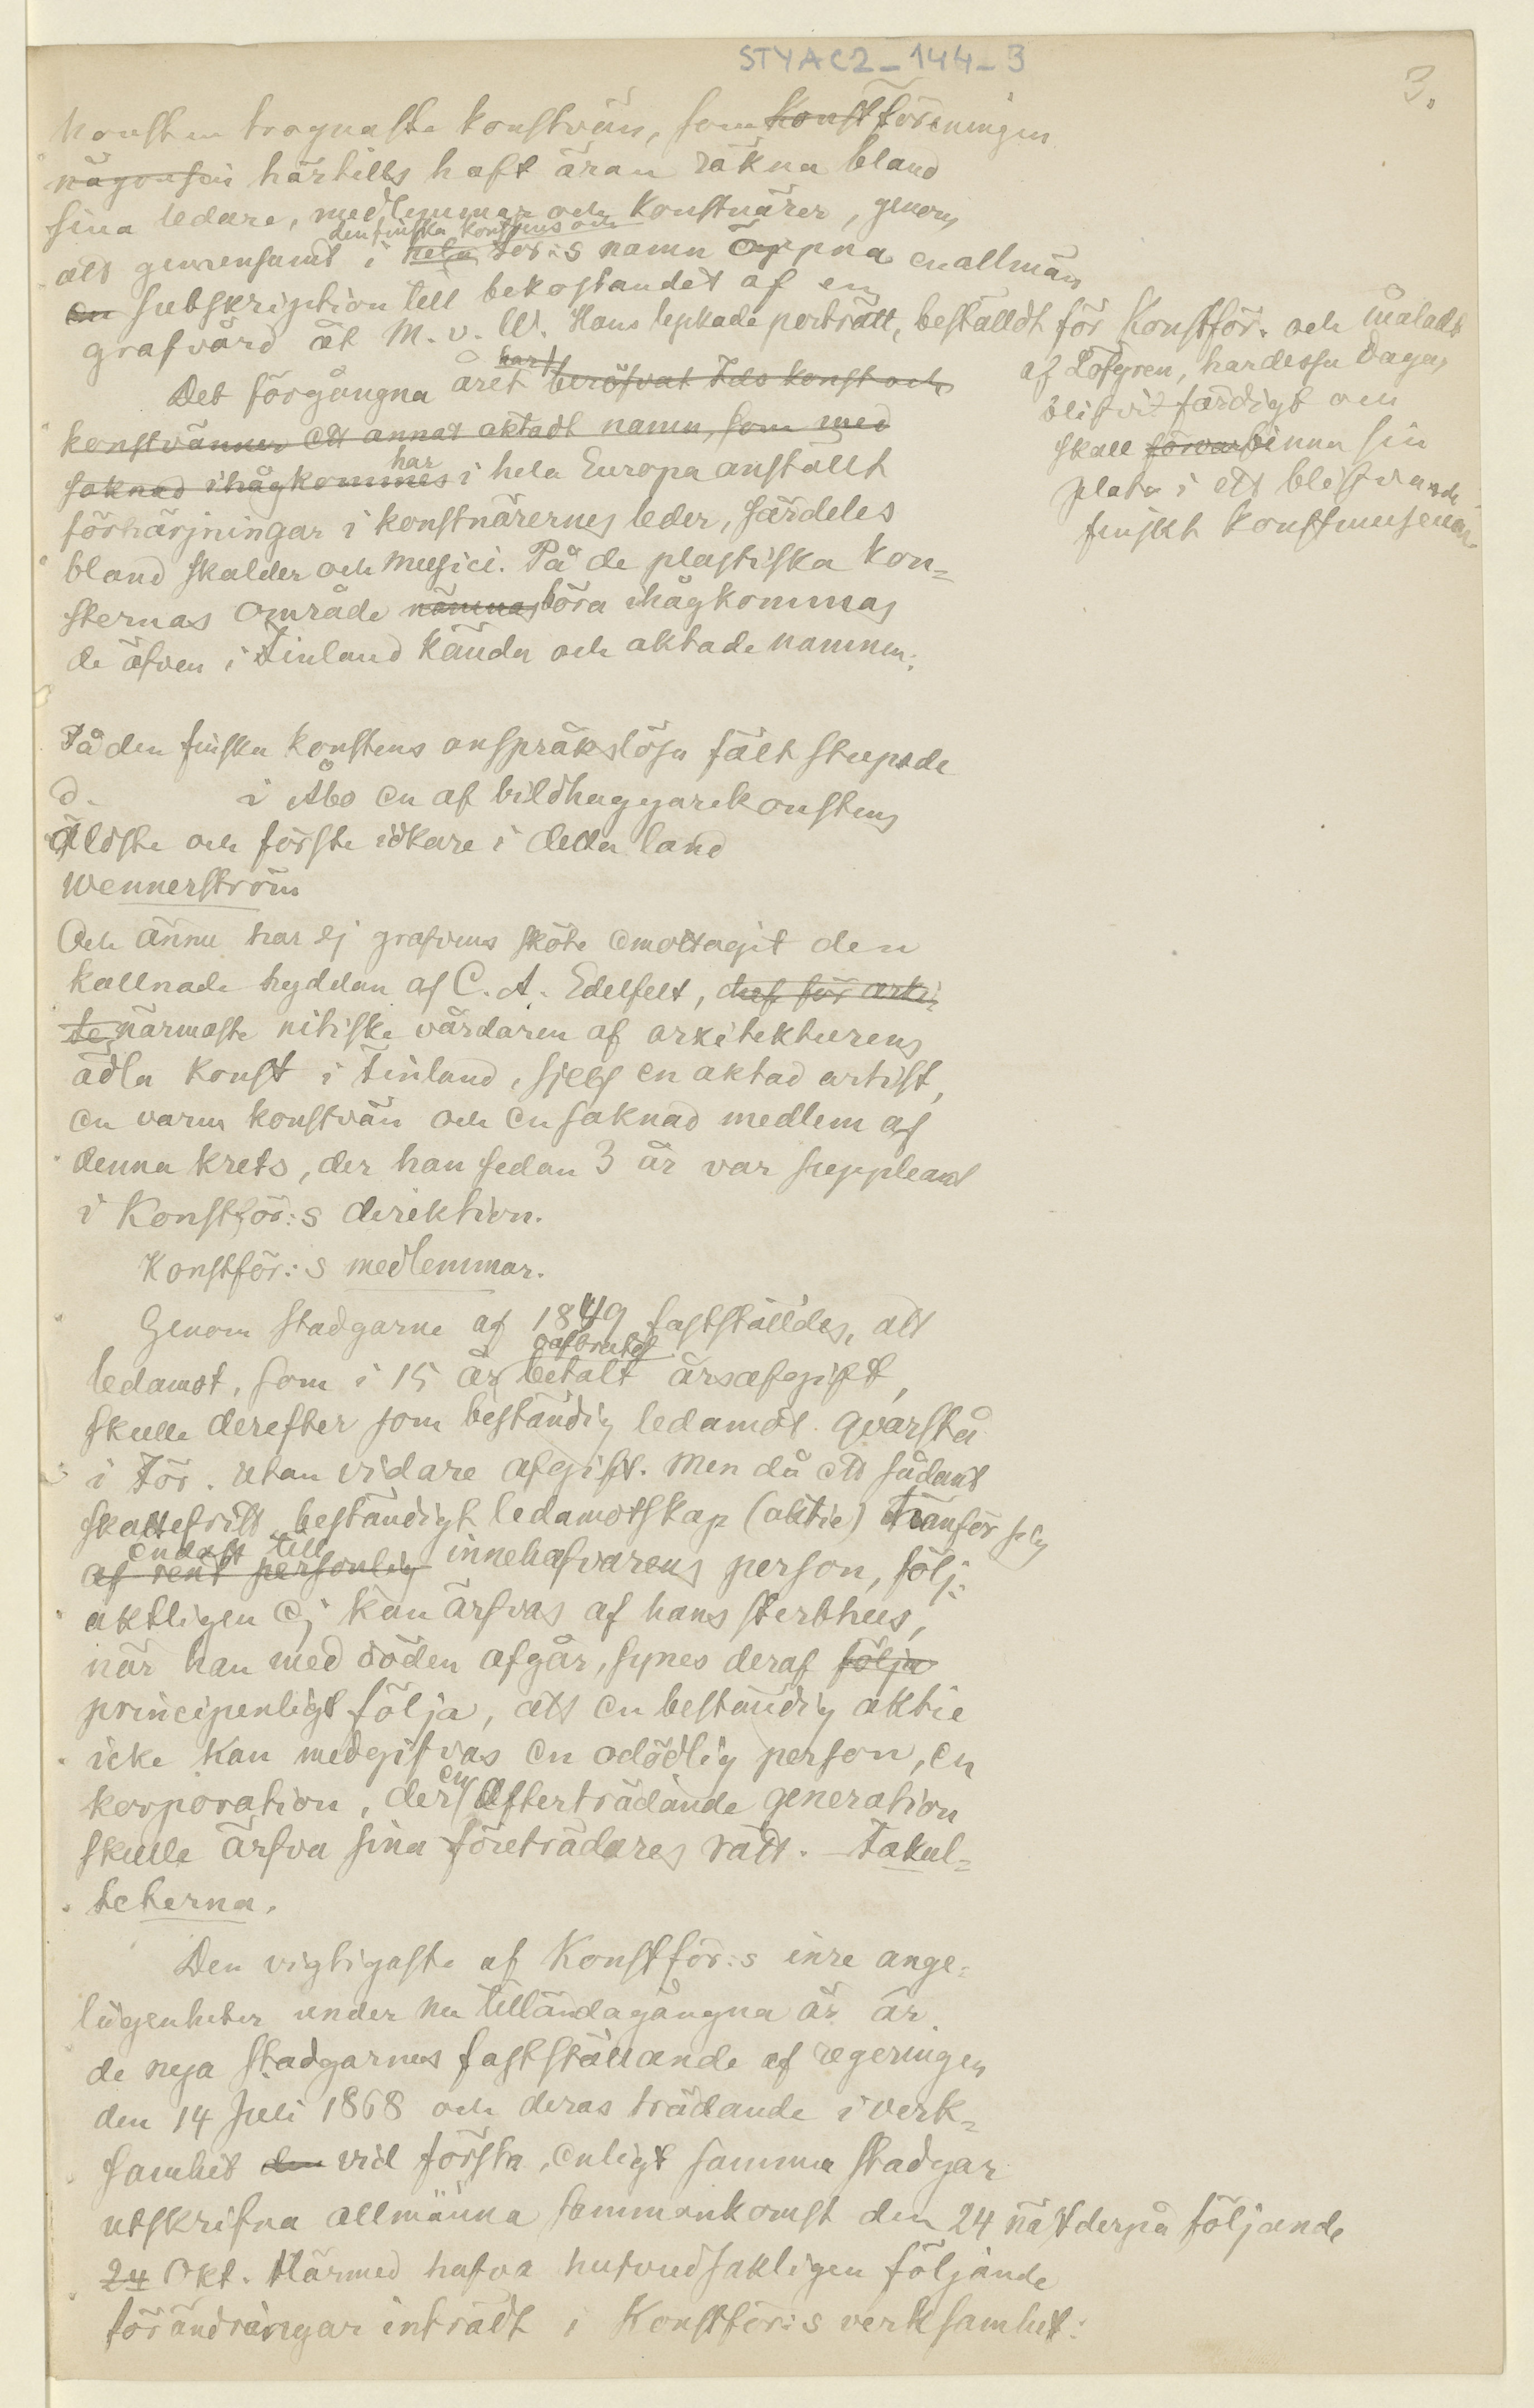 STYAC2_144_3
3.
konsten trognaste konstvän, som Konstföreningen
någonsin härtills haft äran räkna bland
sina ledare, medlemmar och konstnärer, genom
den finska konstens och
att gemensamt i hela För:s namn öppna en allmän
en subskription till bekostandet af en
grafvård åt M. v. W. Hans lyckade porträtt, beställdt för Konstför. och måladt
af Löfgren, har dessa dagar
blifvit färdigt och
skall förvar finna sin
plats i ett blifvande
finskt konstmuseum.
hart
Det förgångna året beröfvat Fds konst och
konstvänner ett annat aktadt namn, som med
har
saknad ihågkommes i hela Europa anställt
förhärjningar i konstnärernes leder, särdeles
bland skalder och musici. På de plastiska kon=
sternas område nämnas böra ihågkommas
de äfven i Finland kända och aktade namnen:
På den finska konstens anspråkslösa fält stupade
d. i Åbo en af bildhuggarekonstens
äldste och förste idkare i detta land
Wennerström
Och ännu har ej grafvens sköte emottagit den
kallnade hyddan af C. A. Edelfelt, chef för arki=
te närmaste nitiske vårdaren af arkitekturens
ädla konst i Finland, sjelf en aktad artist,
en varm konstvän och en saknad medlem af
denna krets, der han sedan 3 år var suppleant
i Konstför:s direktion.
Konstför:s medlemmar.
Genom stadgarne af 1849 fastställdes, att
oafbrutet
ledamot, som i 15 år betalt årsafgift,
skulle derefter som beständig ledamot qvarstå
i För. utan vidare afgift. Men då ett sådant
skattefritt beständigt ledamotskap (aktie) hänför sig
endast till
af rent personlig innehafvarens person, följ=
aktligen ej kan ärfvas af hans sterbhus,
när han med döden afgår, synes deraf följa
principenligt följa, att en beständig aktie
icke kan medgifvas en odödlig person, en
en
korporation, der efterträdande generation
skulle ärfva sina företrädares rätt. – Fakul=
teterna.
Den vigtigaste af Konstför:s inre ange=
lägenheter under nu tilländagångna år är
de nya stadgarnes fastställande af regeringen
den 14 Juli 1868 och deras trädande i verk=
samhet den vid första, enligt samma stadgar
utskrifna allmänna sammankomst den 24 näst derpå följande
24 Okt. Härmed hafva hufvudsakligen följande
förändringar inträdt i Konstför:s verksamhet: